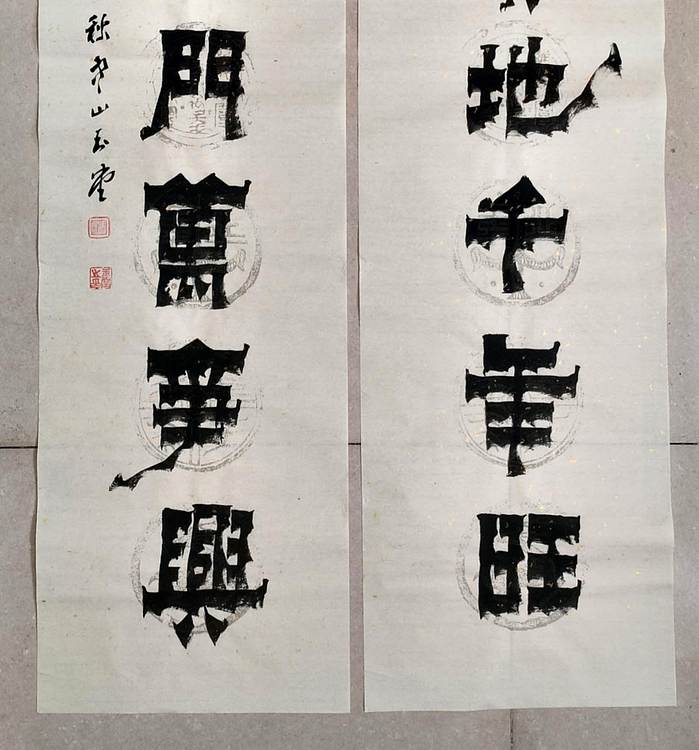 地千年旺
門萬事興
秋 山玉堂